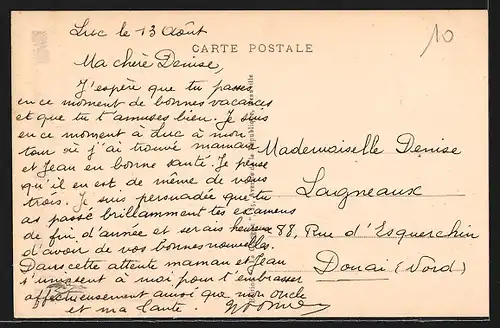 Luc le 13 Août
CARTE POSTALE
10
Ma chère Denise,
J'espère que tu passes
en ce moment de bonnes vacances
et que tu t'amuses bien. Je suis
en ce moment à Luc à mon
tour où j'ai trouvé maman
et Jean en bonne santé. Je pense
qu'il en est de même de vous
trois. Je suis persuadée que tu
as passé brillamment tes examens
de fin d'année et serais heureuse
d'avoir de vos bonnes nouvelles.
Dans cette attente maman et Jean
s'unissent à moi pour t'embrasser
affectueusement ainsi que mon oncle
et ma tante. Yvonne
Mademoiselle Denise
Laigneaux
88, Rue d'Esquerchin
Douai (Nord)